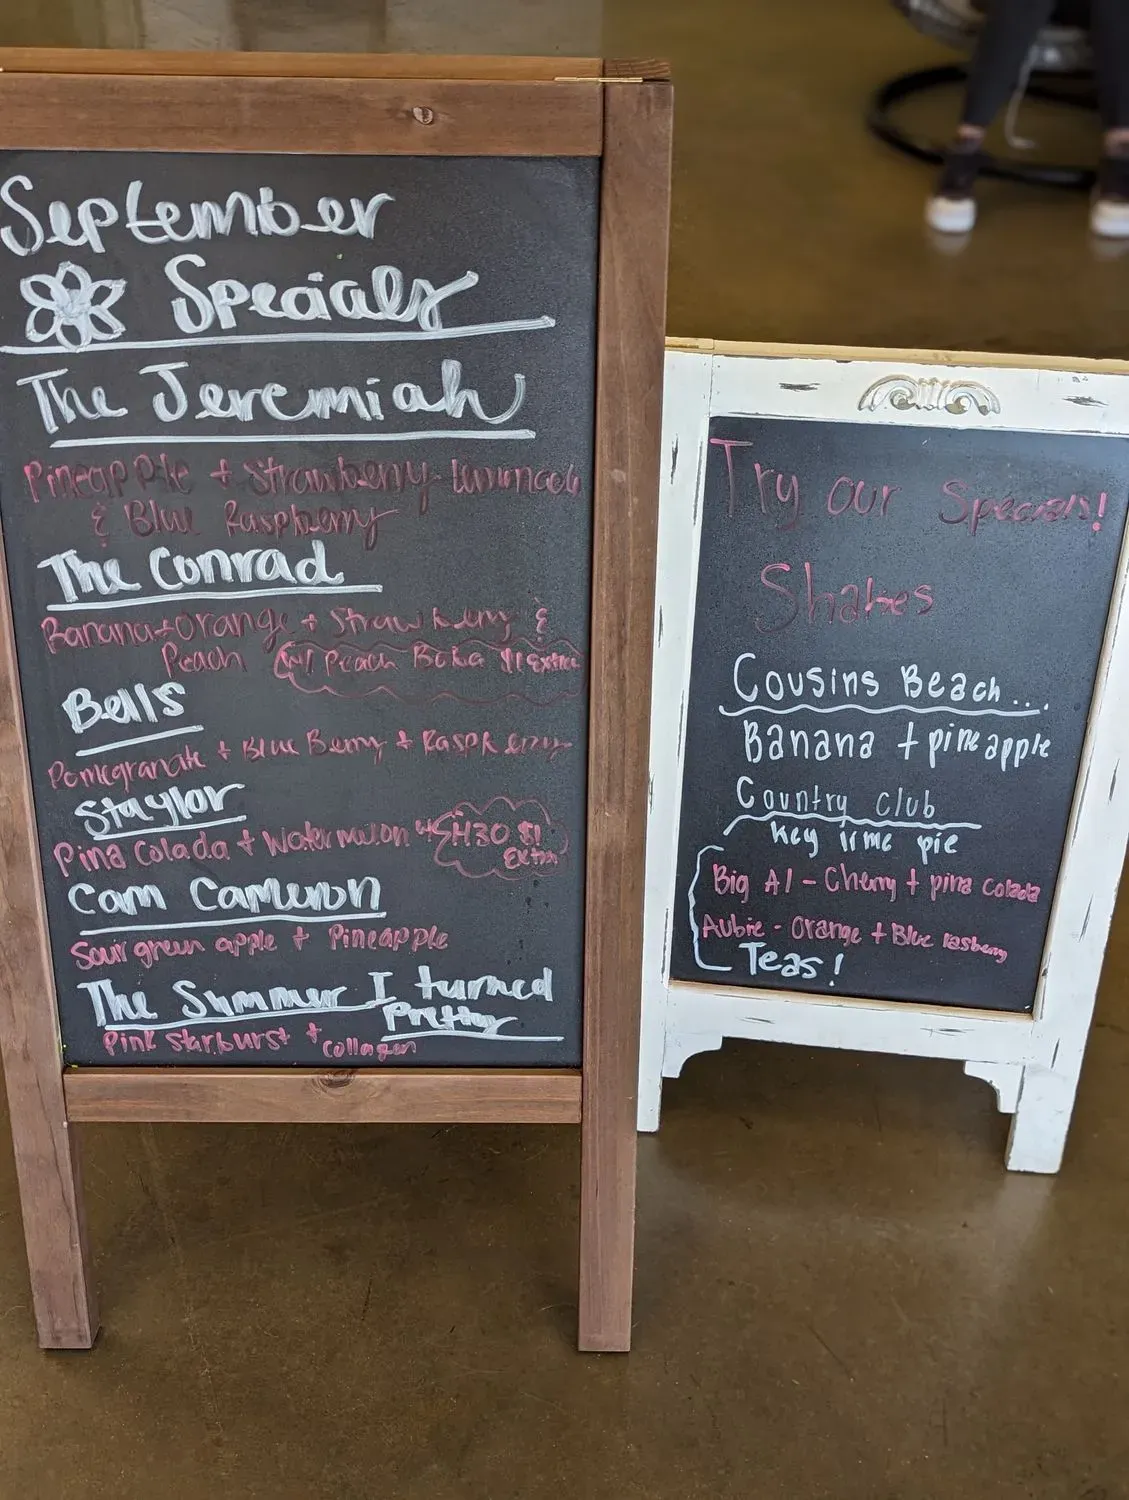 September
Specials
The Jeremiah
Pineapple + Strawberry lemonade
& Blue Raspberry
The Conrad
Banana + Orange + Strawberry &
Peach (w/ Peach Boba $1 Extra
Bells
Pomegranate + Blue Berry + Raspberry
Staylor
Pina Colada + Watermelon w/ H30 $1
Extra
Cam Cameron
Sour green apple + Pineapple
The Summer I turned
Pretty
Pink starburst + collagen
Try our Specials!
Shakes
Cousins Beach...
Banana + pineapple
Country Club
Key lime pie
Big Al - Cherry + pina colada
Aubie - Orange + Blue rasberry
Teas!